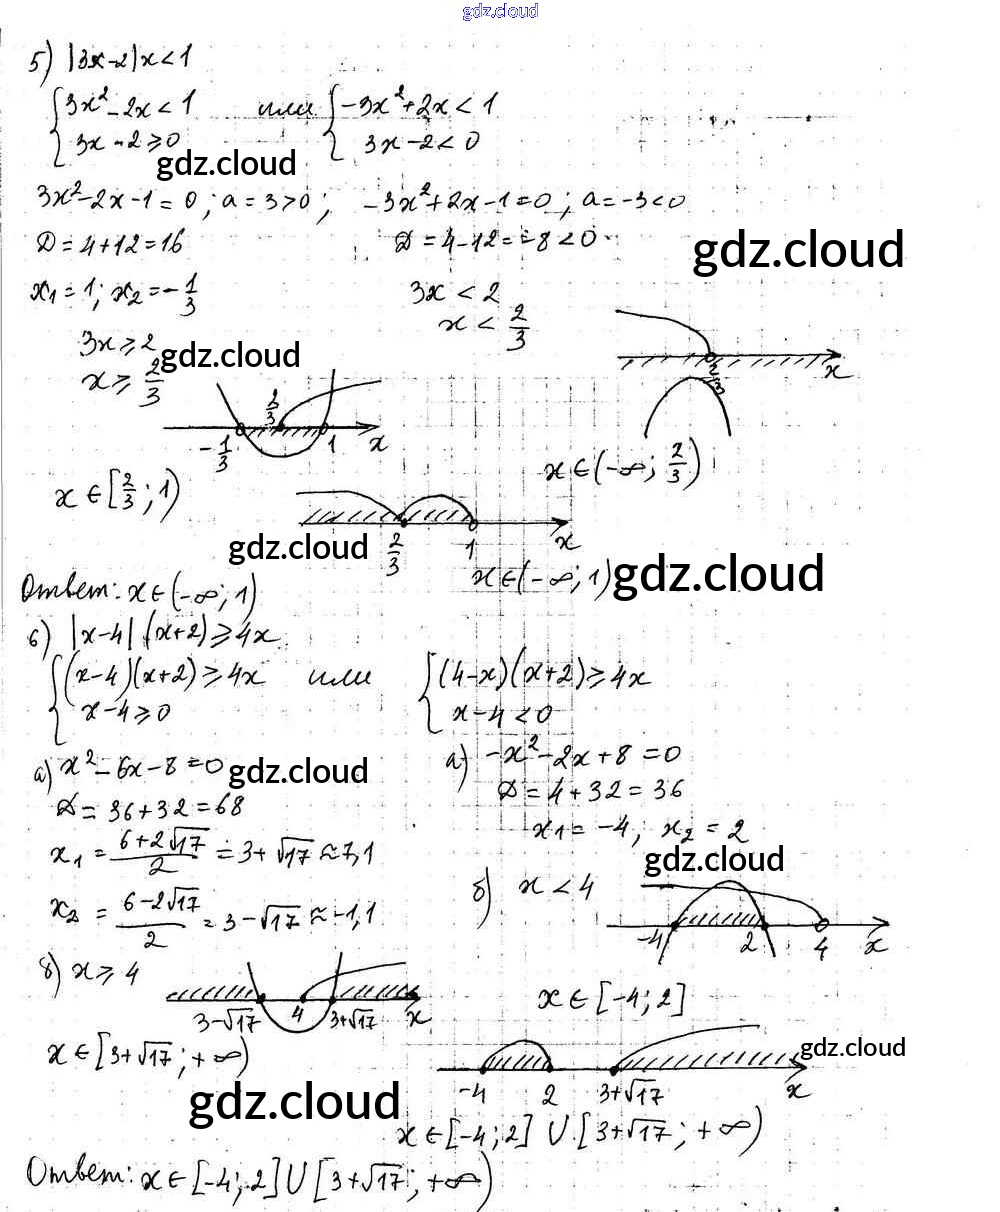 gdz.cloud
5) |3x-2|x<1
{3x²-2x<1 или {-3x²+2x<1
3x-2≥0 3x-2<0
gdz.cloud
3x²-2x-1=0; a=3>0; -3x²+2x-1=0; a=-3<0
D=4+12=16 D=4-12=-8<0
gdz.cloud
x₁=1; x₂=-1/3 3x<2
x<2/3
3x≥2
gdz.cloud
x≥2/3
2/3 x
2/3
-1/3 1 x
x∈(-∞; 2/3)
x∈[2/3; 1)
gdz.cloud
2/3 1 x
x∈(-∞; 1)
gdz.cloud
Ответ: x∈(-∞; 1)
6) |x-4|(x+2)≥4x
{(x-4)(x+2)≥4x или {(4-x)(x+2)≥4x
x-4≥0 x-4<0
а) x²-6x-8=0 а) -x²-2x+8=0
gdz.cloud
D=36+32=68 D=4+32=36
x₁=(6+2√17)/2=3+√17≈7,1 x₁=-4; x₂=2
gdz.cloud
x₂=(6-2√17)/2=3-√17≈-1,1 б) x<4
-4 2 4 x
б) x≥4
3-√17 4 3+√17 x
x∈[-4; 2]
x∈[3+√17; +∞)
gdz.cloud
-4 2 3+√17 x
gdz.cloud
x∈[-4; 2] U [3+√17; +∞)
Ответ: x∈[-4; 2] U [3+√17; +∞)